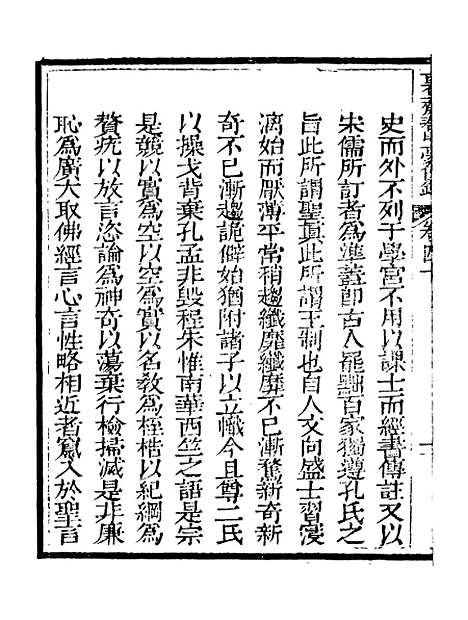 史而外不列于學宮不用以課士而經書傳註又以
宋儒所訂者爲準蓋即古人罷黜百家獨遵孔氏之
旨此所謂聖眞此所謂王制也自人文向盛士習寖
漓始而厭薄平常稍趨纖靡纖靡不已漸騖新奇新
奇不已漸趨詭僻始猶附諸子以立幟今且尊二氏
以操戈背棄孔孟非毀程朱惟南華西竺之語是宗
是競以實爲空以空爲實以名教爲桎梏以紀綱爲
贅疣以放言恣論爲神奇以蕩棄行檢掃滅是非廉
恥爲廣大取佛經言心言性略相近者竄入於聖言